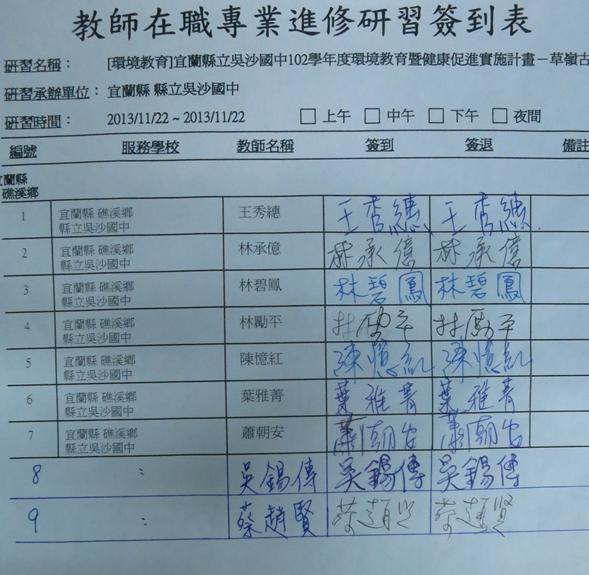 教師在職專業進修研習簽到表
研習名稱： [環境教育]宜蘭縣立吳沙國中102學年度環境教育暨健康促進實施計畫－草嶺古
研習承辦單位： 宜蘭縣 縣立吳沙國中
研習時間： 2013/11/22 ~ 2013/11/22 □ 上午 □ 中午 □ 下午 □ 夜間
編號 服務學校 教師名稱 簽到 簽退 備註
宜蘭縣
礁溪鄉
1 宜蘭縣 礁溪鄉 王秀穗 王秀穗 王秀穗
縣立吳沙國中
2 宜蘭縣 礁溪鄉 林承億 林承億 林承億
縣立吳沙國中
3 宜蘭縣 礁溪鄉 林碧鳳 林碧鳳 林碧鳳
縣立吳沙國中
4 宜蘭縣 礁溪鄉 林勵平 林勵平 林勵平
縣立吳沙國中
5 宜蘭縣 礁溪鄉 陳憶紅 陳憶紅 陳憶紅
縣立吳沙國中
6 宜蘭縣 礁溪鄉 葉雅菁 葉雅菁 葉雅菁
縣立吳沙國中
7 宜蘭縣 礁溪鄉 蕭朝安 蕭朝安 蕭朝安
縣立吳沙國中
8 〃 吳錫傳 吳錫傳 吳錫傳
9 〃 蔡趙賢 蔡趙賢 蔡趙賢